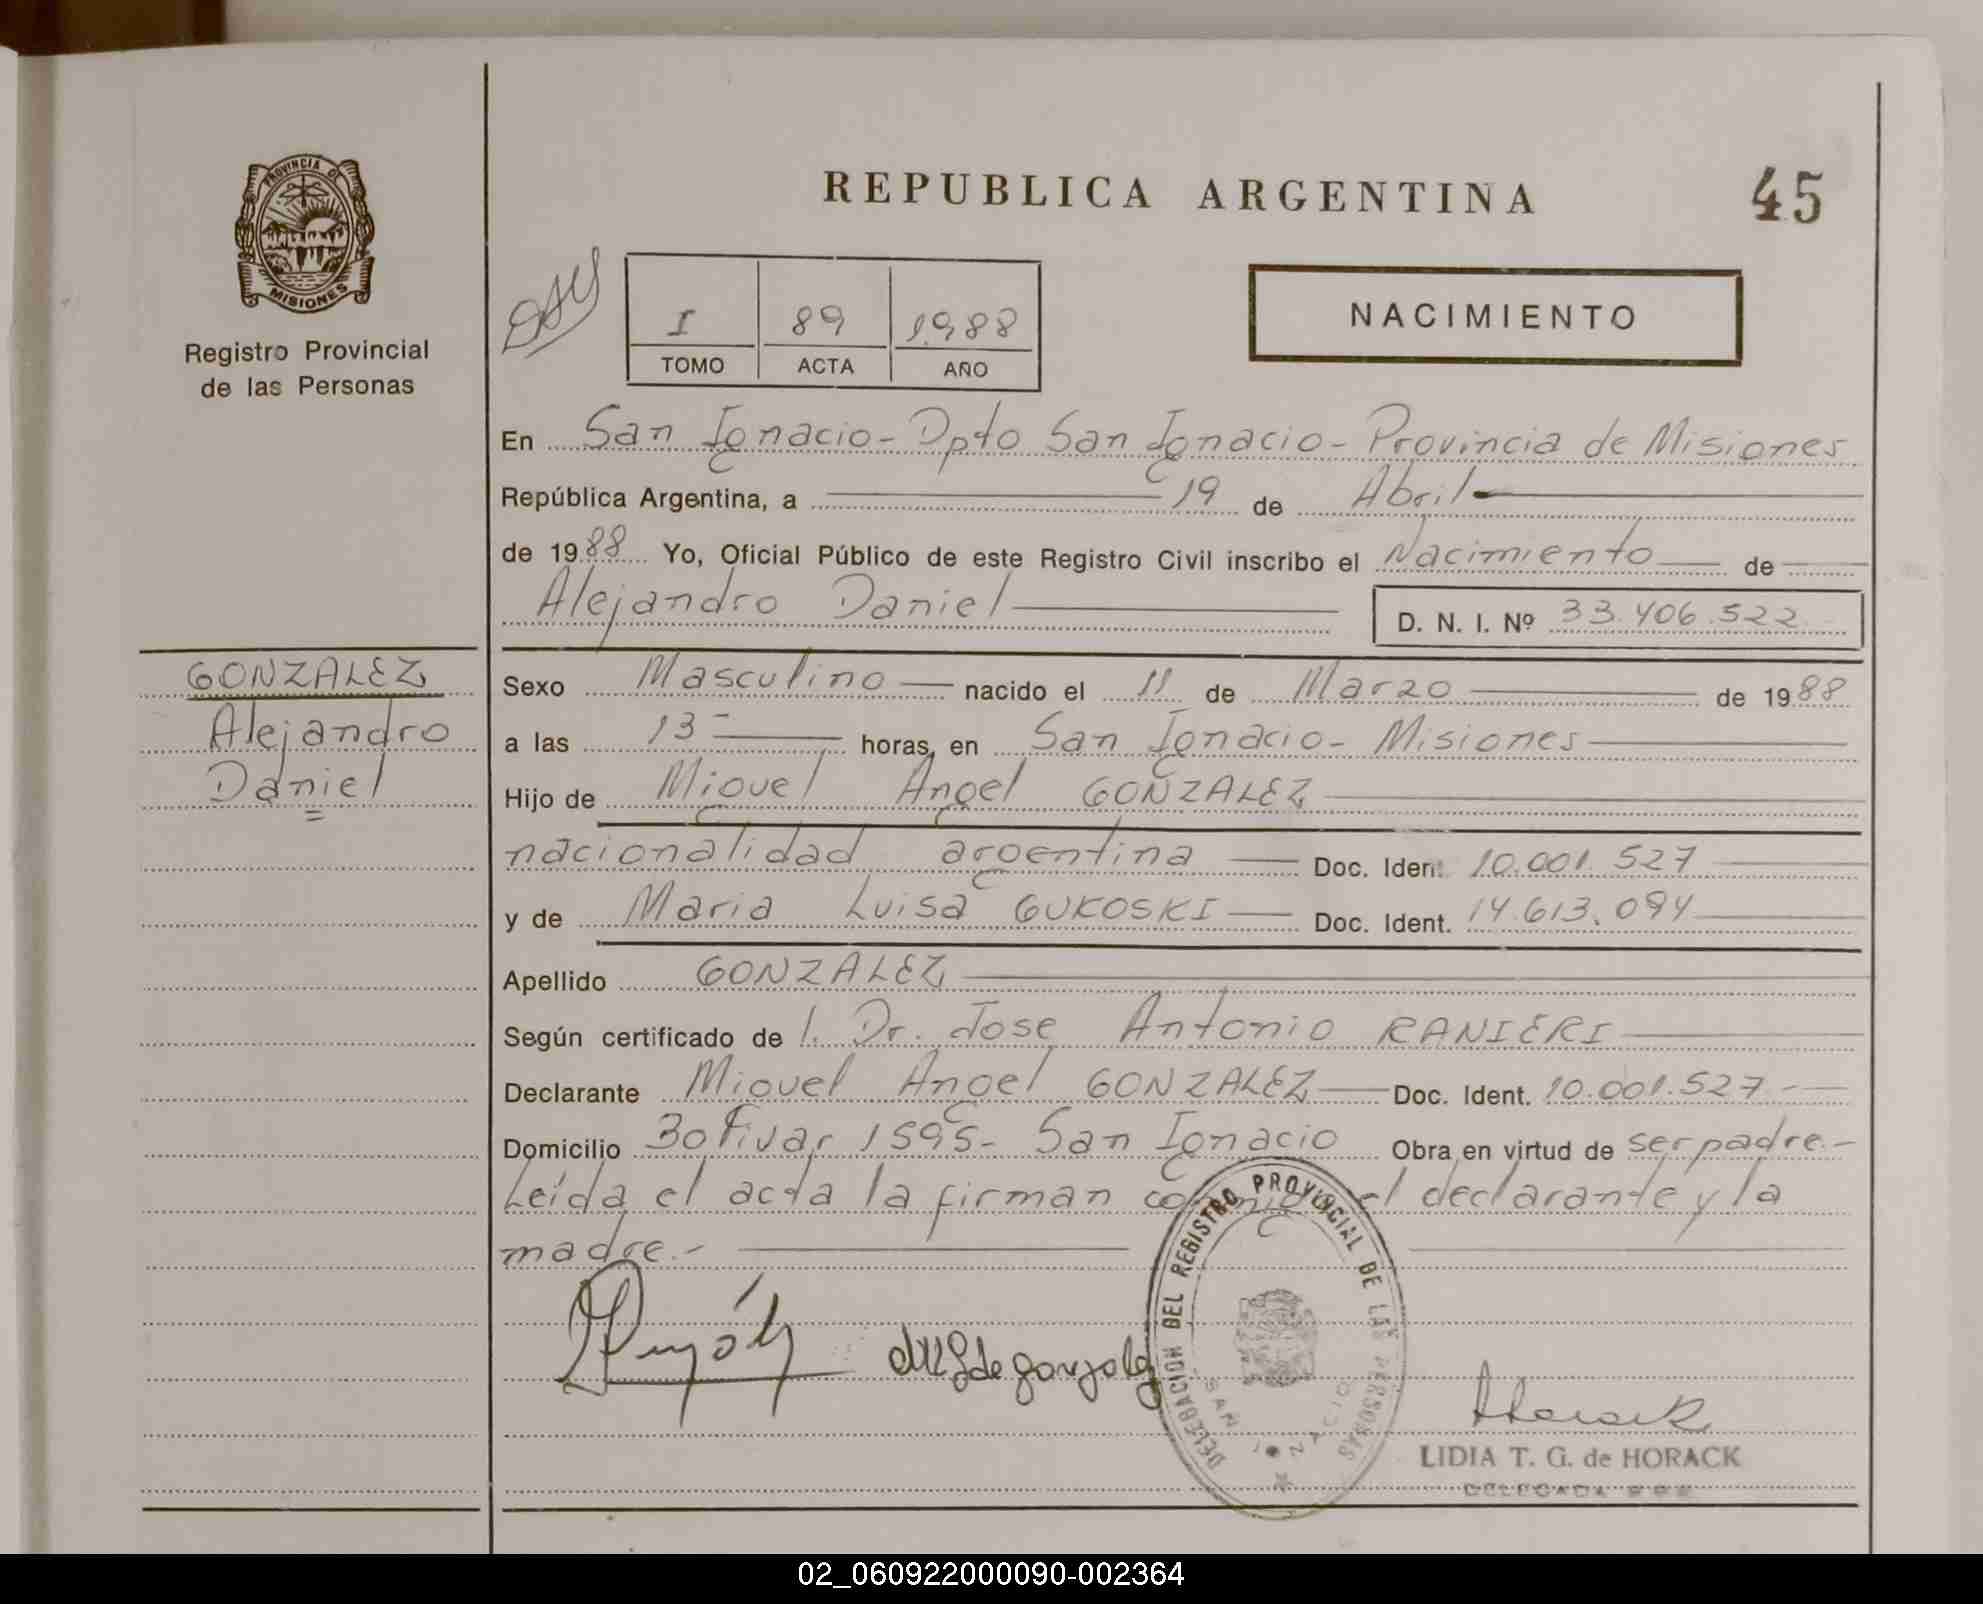 PROVINCIA D
MISIONES
Registro Provincial
de las Personas
REPUBLICA ARGENTINA
45
I 89 1988
TOMO ACTA AÑO
NACIMIENTO
En San Ignacio - Dpto San Ignacio - Provincia de Misiones
República Argentina, a 19 de Abril
de 1988 Yo, Oficial Público de este Registro Civil inscribo el Nacimiento de
Alejandro Daniel D. N. I. Nº 33.406.522
GONZALEZ
Alejandro
Daniel
Sexo Masculino nacido el 11 de Marzo de 1988
a las 13 horas, en San Ignacio - Misiones
Hijo de Miguel Angel GONZALEZ
nacionalidad argentina Doc. Ident. 10.001.527
y de Maria Luisa GUKOSKI Doc. Ident. 14.613.094
Apellido GONZALEZ
Según certificado de l. Dr. Jose Antonio RANIERI
Declarante Miguel Angel GONZALEZ Doc. Ident. 10.001.527 -
Domicilio Bolivar 1595 - San Ignacio Obra en virtud de ser padre.-
Leída el acta la firman conmigo el declarante y la
madre.-
de gonzalez
DELEGACION DEL REGISTRO PROVINCIAL DE LAS PERSONAS
SAN IGNACIO
Horack
LIDIA T. G. de HORACK
DELEGADA
02_060922000090-002364